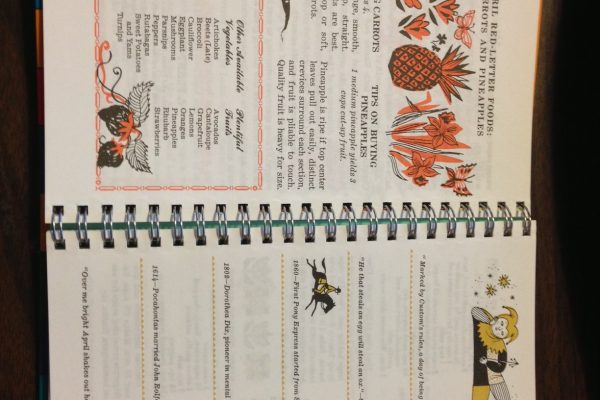 RIL RED-LETTER FOODS:
ARROTS AND PINEAPPLES
G CARROTS
ge, smooth,
s 4.
p, straight.
ls are best.
op or soft,
rots.
TIPS ON BUYING
PINEAPPLES
1 medium pineapple yields 3
cups cut-up fruit.
Pineapple is ripe if top center
leaves pull out easily, distinct
crevices surround each section,
and fruit is pliable to touch.
Quality fruit is heavy for size.
Other Available
Vegetables
Artichokes
Beets (Late)
Broccoli
Cauliflower
Eggplant
Mushrooms
Parsnips
Peppers
Rutabagas
Sweet Potatoes
and Yams
Turnips
Plentiful
Fruits
Avocados
Cantaloupe
Grapefruit
Lemons
Oranges
Pineapples
Rhubarb
Strawberries
"Marked by Custom's rules, a day of being
"He that steals an egg will steal an ox."
1860—First Pony Express started from S
1802—Dorothea Dix, pioneer in mental
1614—Pocahontas married John Rolfe
"Over me bright April shakes out he